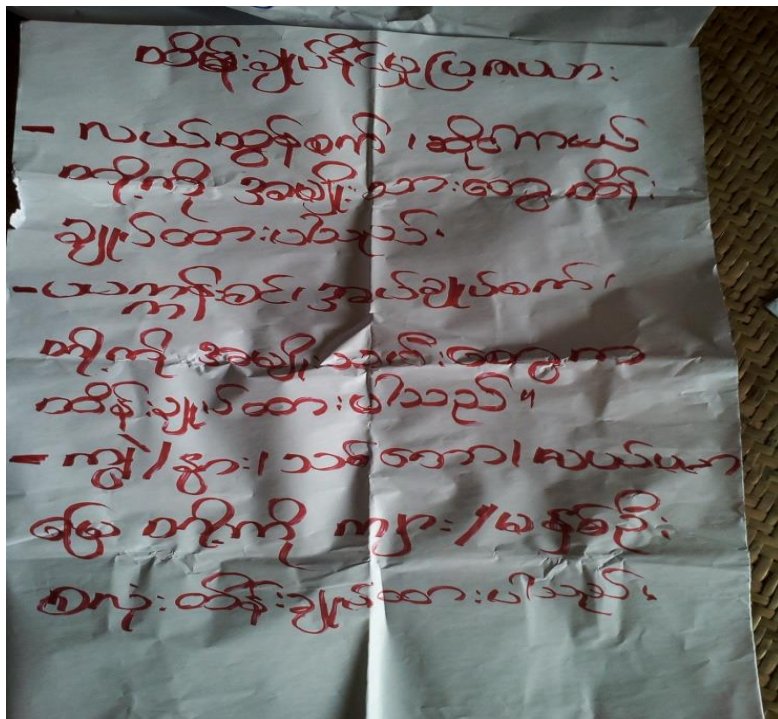 ထိန်းချုပ်နိုင်မှုပြဇယား
- လယ်ထွန်စက်၊ ဆိုင်ကယ်
တို့ကို အမျိုးသားတွေ ထိန်း
ချုပ်ထားပါသည်။
- ပယက္ကန်းစင်၊ အပ်ချုပ်စက်၊
တို့ကို အမျိုးသမီးတွေက
ထိန်းချုပ်ထားပါသည်။
- ကျွဲ/နွား၊ သစ်တော၊ လယ်ယာ
မြေ တို့ကို ကျား/မ နှစ်ဦး
စလုံး ထိန်းချုပ်ထားပါသည်။